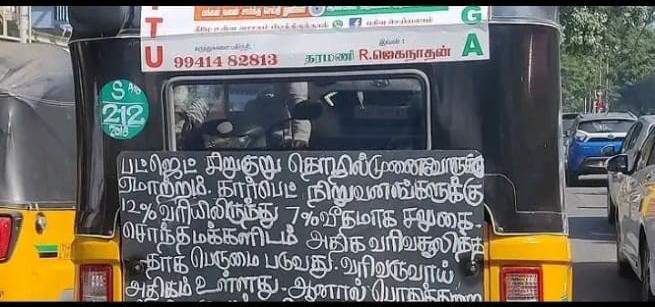 TU
GA
கருத்துகளை பதிந்திட :
99414 82813
இவண் :
தரமணி R.ஜெகநாதன்
S
212
2018
பட்ஜெட் சிறுகுறு தொழில்முனைவோருக்கு
ஏமாற்றம். கார்பெட் நிறுவனங்களுக்கு
12% வரியிலிருந்து 7% விதமாக சலுகை.
சொந்தமக்களிடம் அதிக வரிவசூலித்த
தாக பெருமை படுவது. வரிவருவாய்
அதிகம் உள்ளது. ஆனால்